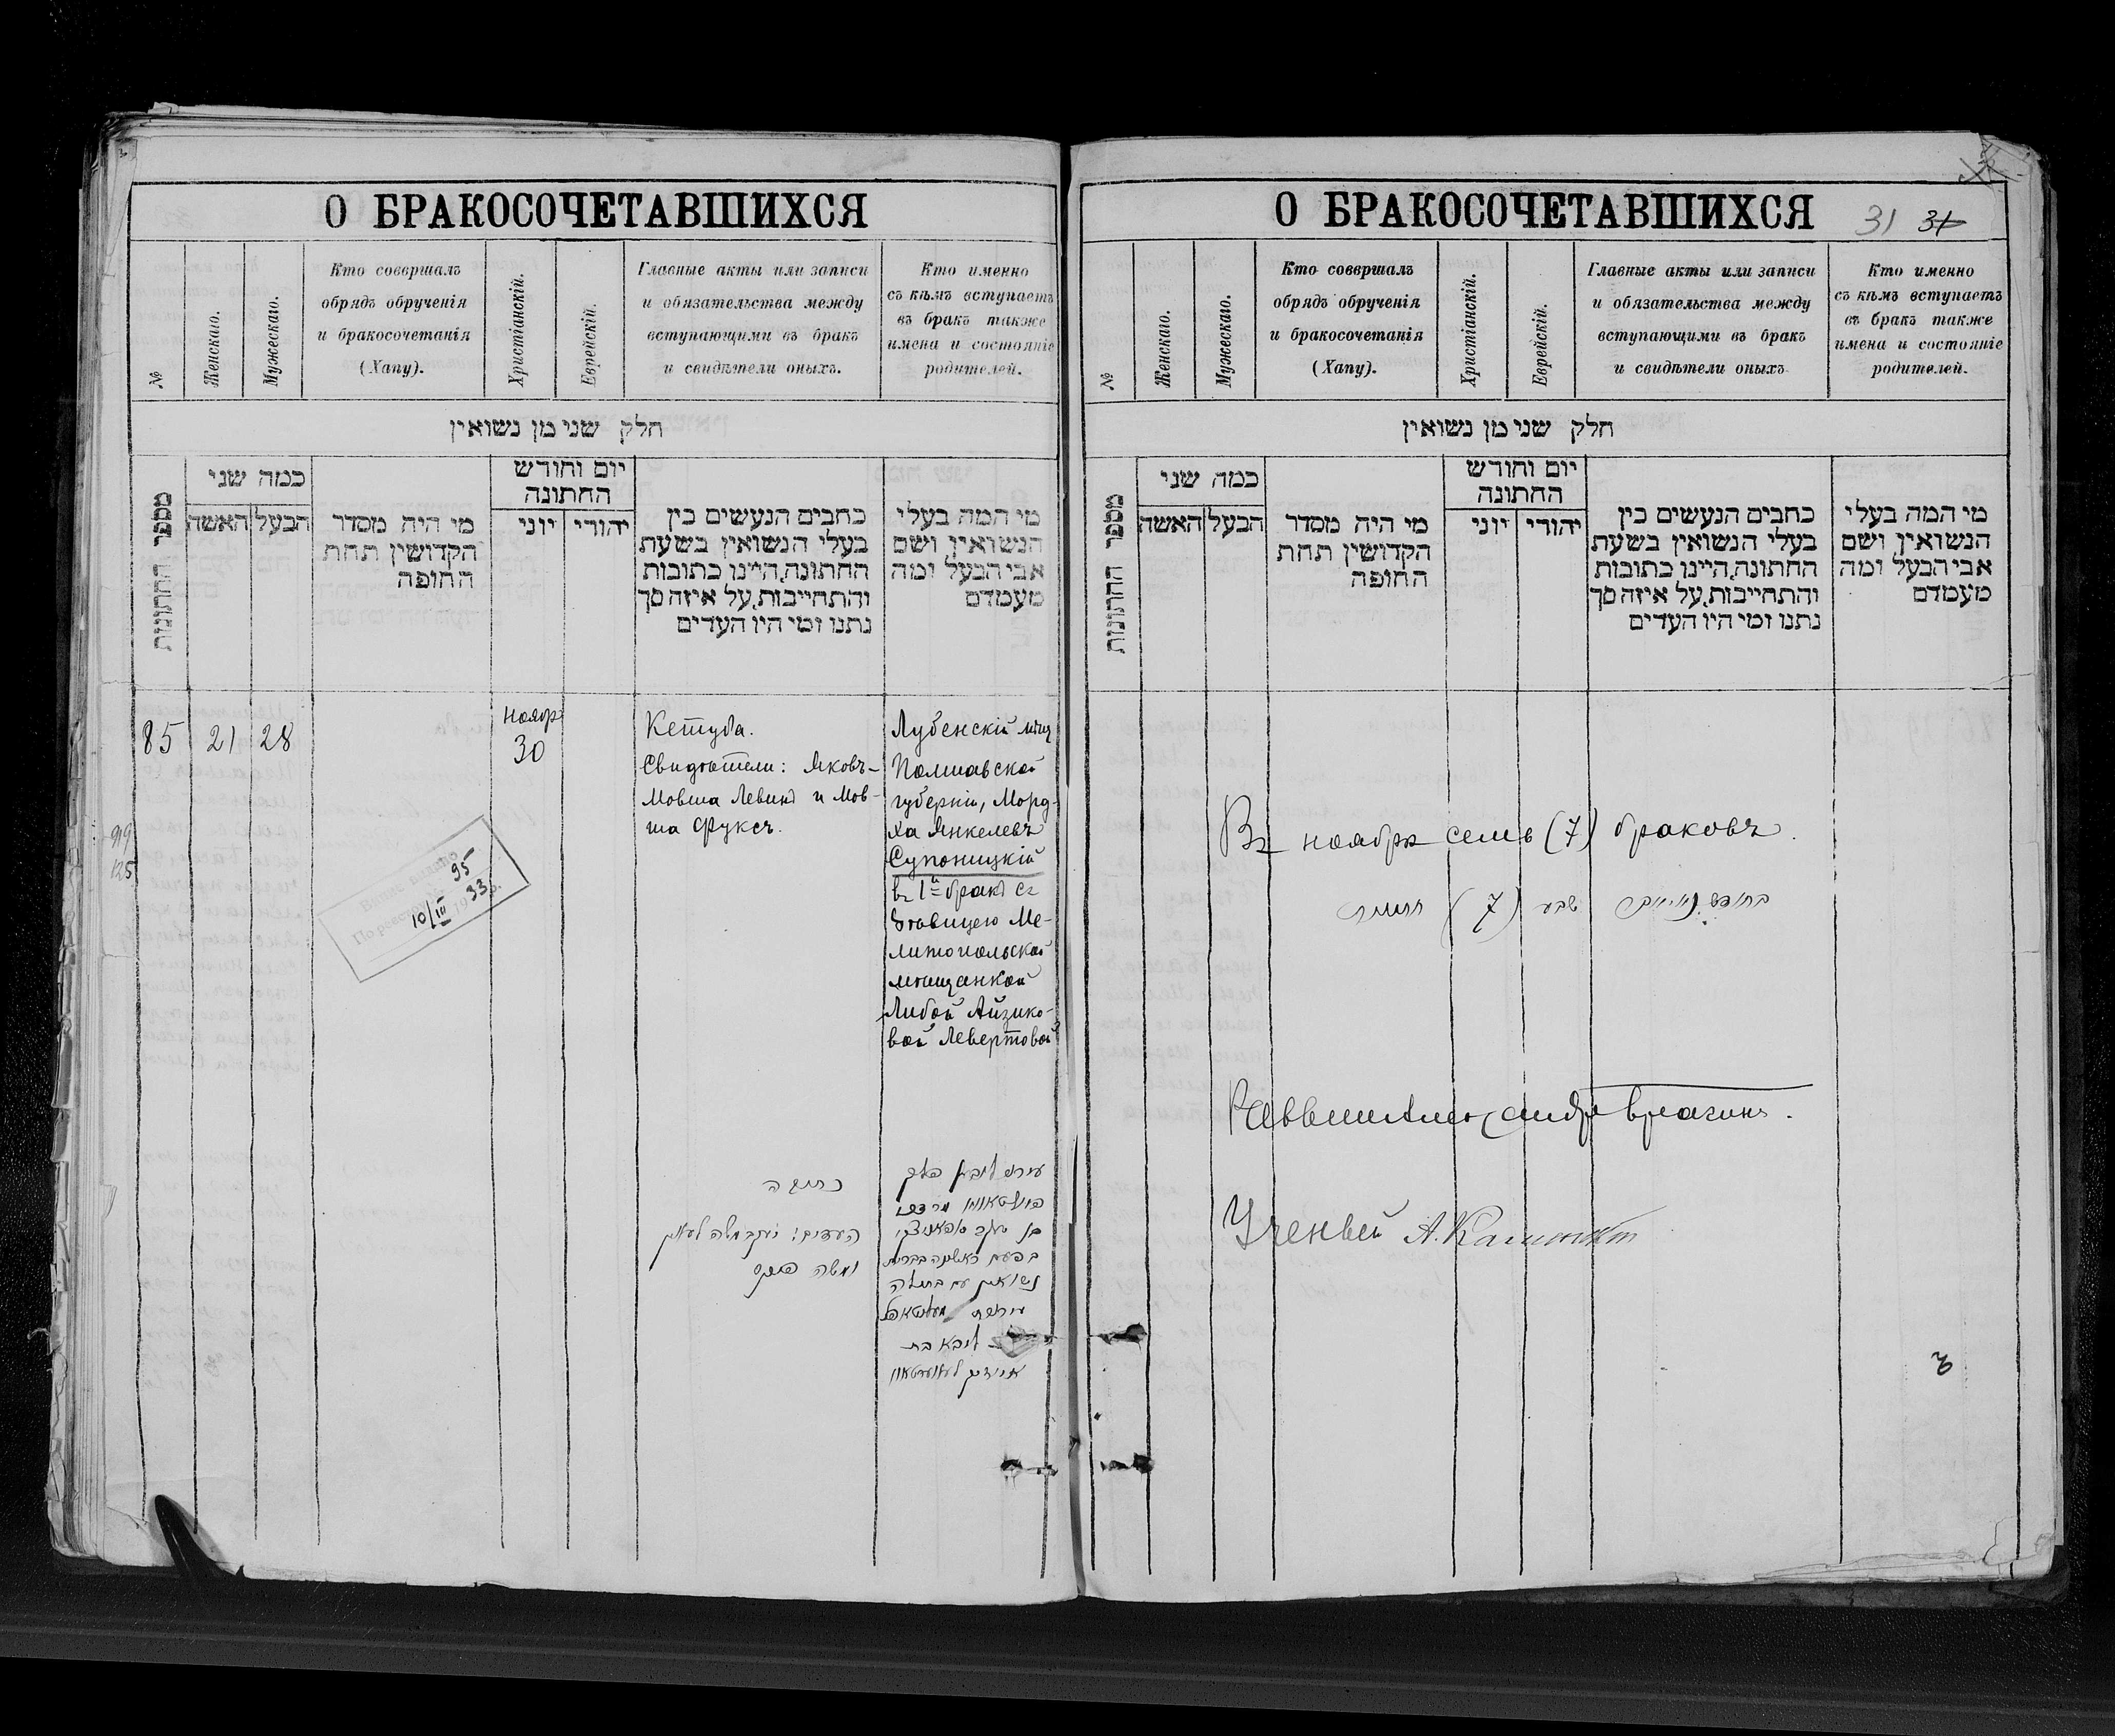 О БРАКОСОЧЕТАВШИХСЯ
№
Женскаго.
Мужескаго.
Кто совершалъ
обрядъ обрученія
и бракосочетанія
(Хапу).
Христіанскій.
Еврейскій.
Главные акты или записи
и обязательства между
вступающими въ бракъ
и свидѣтели оныхъ.
Кто именно
съ кѣмъ вступаетъ
въ бракъ также
имена и состояніе
родителей.
חלק שני מן נשואין
מספר החתונות
כמה שני
האשה
הבעל
מי היה מסדר
הקדושין תחת
החופה
יום וחודש
החתונה
יוני
יהודי
כתבים הנעשים בין
בעלי הנשואין בשעת
החתונה, היינו כתובות
והתחייבות, על איזה סך
נתנו ומי היו העדים
מי המה בעלי
הנשואין ושם
אבי הבעל ומה
מעמדם
85
21
28
ноябр
30
Кетуба.
Свидѣтели: Яковъ-
Мовша Левинъ и Мов-
ша Фуксъ.
Лубенскій мѣщ
Полтавской
губерніи, Морд-
ха Янкелевъ
Супоницкій
въ 1й бракъ съ
дѣвицею Ме-
литопольской
мѣщанкой
Либой Айзико-
вой Левертовой
919
125
95
10/III 1933
כתובה
העדים: יעקב משה לעווין
ומשה פוקס
בן יעקב סופאניצקי
בפעם ראשונה בברית
נשואין עם בתולה
ליבא בת
אייזיק לעווערטאוו
О БРАКОСОЧЕТАВШИХСЯ
31 31
№
Женскаго.
Мужескаго.
Кто совершалъ
обрядъ обрученія
и бракосочетанія
(Хапу).
Христіанскій.
Еврейскій.
Главные акты или записи
и обязательства между
вступающими въ бракъ
и свидѣтели оныхъ
Кто именно
съ кѣмъ вступаетъ
въ бракъ также
имена и состояніе
родителей.
חלק שני מן נשואין
מספר החתונות
כמה שני
האשה
הבעל
מי היה מסדר
הקדושין תחת
החופה
יום וחודש
החתונה
יוני
יהודי
כתבים הנעשים בין
בעלי הנשואין בשעת
החתונה, היינו כתובות
והתחייבות, על איזה סך
נתנו ומי היו העדים
מי המה בעלי
הנשואין ושם
אבי הבעל ומה
מעמדם
Въ ноябрѣ семь (7) браковъ.
שבע (7) חתונות
Ученый